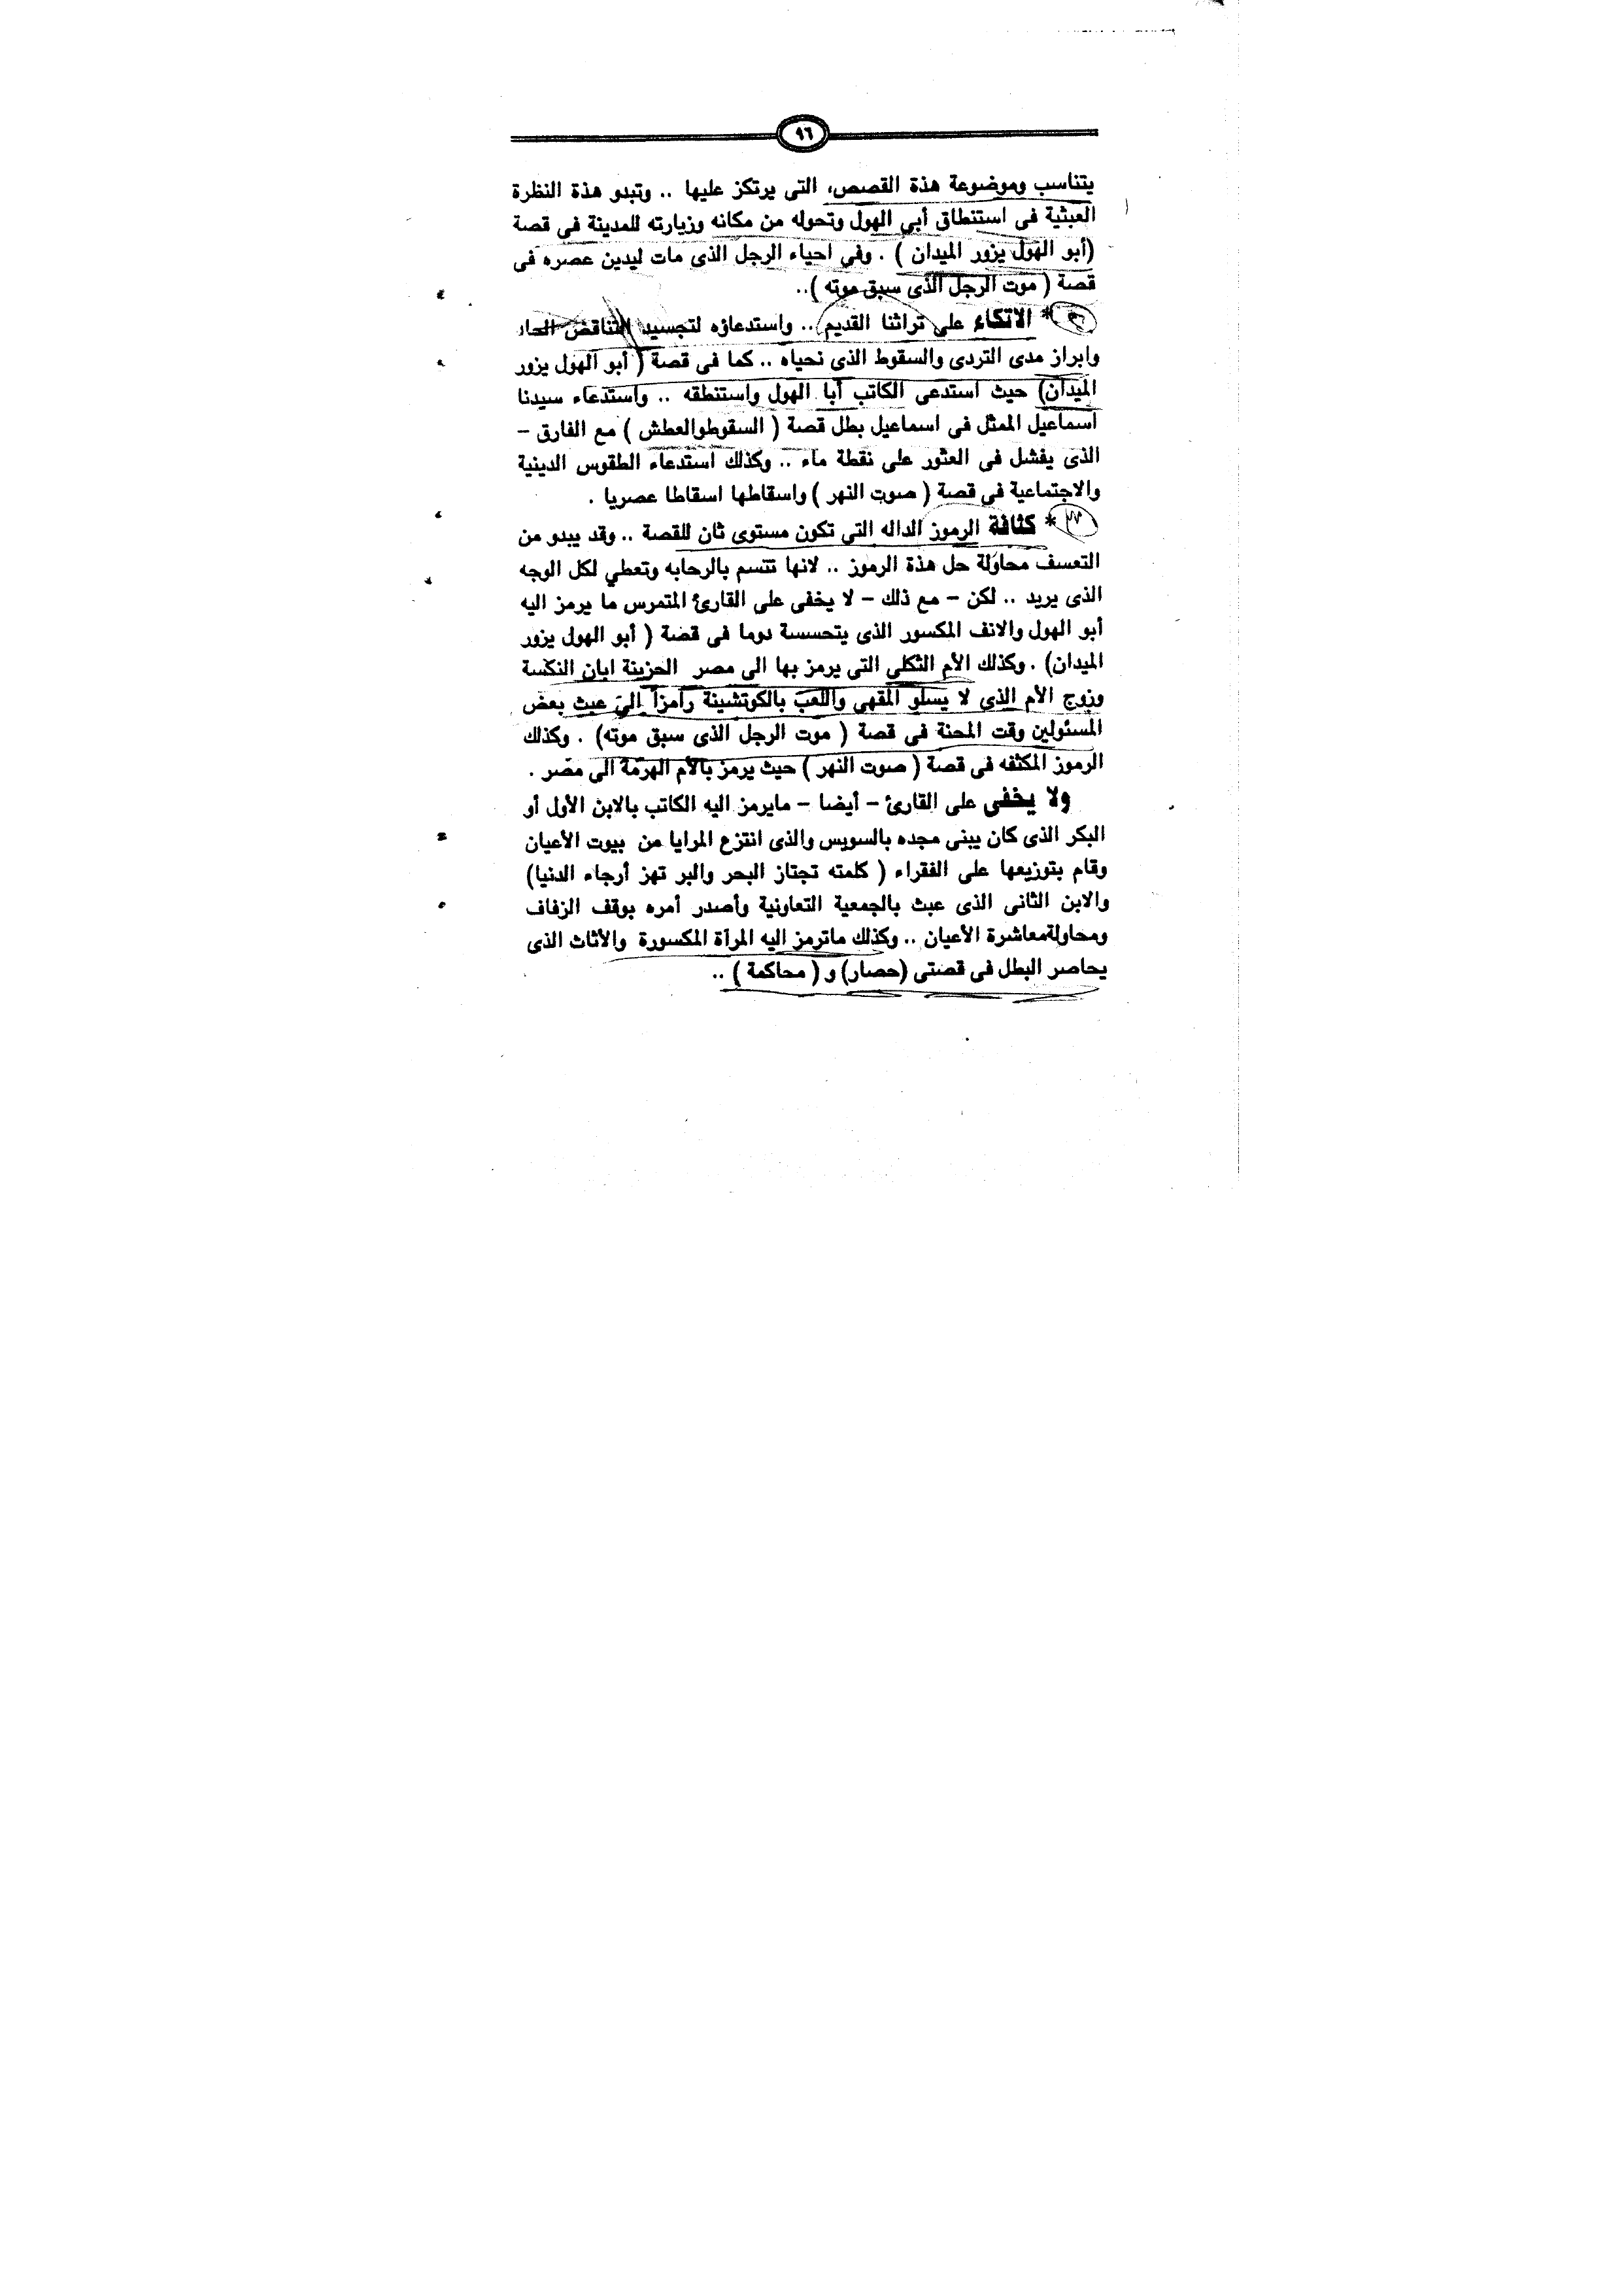 ٩٦
يتناسب وموضوعة هذة القصص، التى يرتكز عليها .. وتبدو هذة النظرة
العبثية فى استنطاق أبي الهول وتحوله من مكانه وزيارته للمدينة فى قصة
(أبو الهول يزور الميدان ) . وفي احياء الرجل الذى مات ليدين عصره فى
قصة ( موت الرجل الذى سبق موته )..
* الاتكاء على تراثنا القديم .. واستدعاؤه لتجسيد التناقض الحاد
وابراز مدى التردى والسقوط الذى نحياه .. كما فى قصة ( أبو الهول يزور
الميدان) حيث استدعى الكاتب أبا الهول واستنطقه .. واستدعاء سيدنا
اسماعيل الممثل فى اسماعيل بطل قصة ( السقوطوالعطش ) مع الفارق –
الذى يفشل فى العثور على نقطة ماء .. وكذلك استدعاء الطقوس الدينية
والاجتماعية فى قصة ( صوت النهر ) واسقاطها اسقاطا عصريا .
* كثافة الرموز الداله التي تكون مستوى ثان للقصة .. وقد يبدو من
التعسف محاولة حل هذة الرموز .. لانها تتسم بالرحابه وتعطي لكل الوجه
الذى يريد .. لكن – مع ذلك – لا يخفى على القارئ المتمرس ما يرمز اليه
أبو الهول والانف المكسور الذى يتحسسة دوما فى قصة ( أبو الهول يزور
الميدان) . وكذلك الأم الثكلى التى يرمز بها الى مصر الحزينة ابان النكسة
وزوج الأم الذي لا يسلو المقهى واللعب بالكوتشينة رامزاً الى عبث بعض
المسئولين وقت المحنة فى قصة ( موت الرجل الذى سبق موته) . وكذلك
الرموز المكثفه فى قصة ( صوت النهر ) حيث يرمز بالأم الهرمة الى مصر .
ولا يخفى على القارئ – أيضا – مايرمز اليه الكاتب بالابن الأول أو
البكر الذى كان يبنى مجده بالسويس والذى انتزع المرايا من بيوت الأعيان
وقام بتوزيعها على الفقراء ( كلمته تجتاز البحر والبر تهز أرجاء الدنيا)
والابن الثانى الذى عبث بالجمعية التعاونية وأصدر أمره بوقف الزفاف
ومحاولةمعاشرة الأعيان .. وكذلك ماترمز اليه المرآة المكسورة والأثاث الذى
يحاصر البطل فى قصتى (حصار) و ( محاكمة ) ..